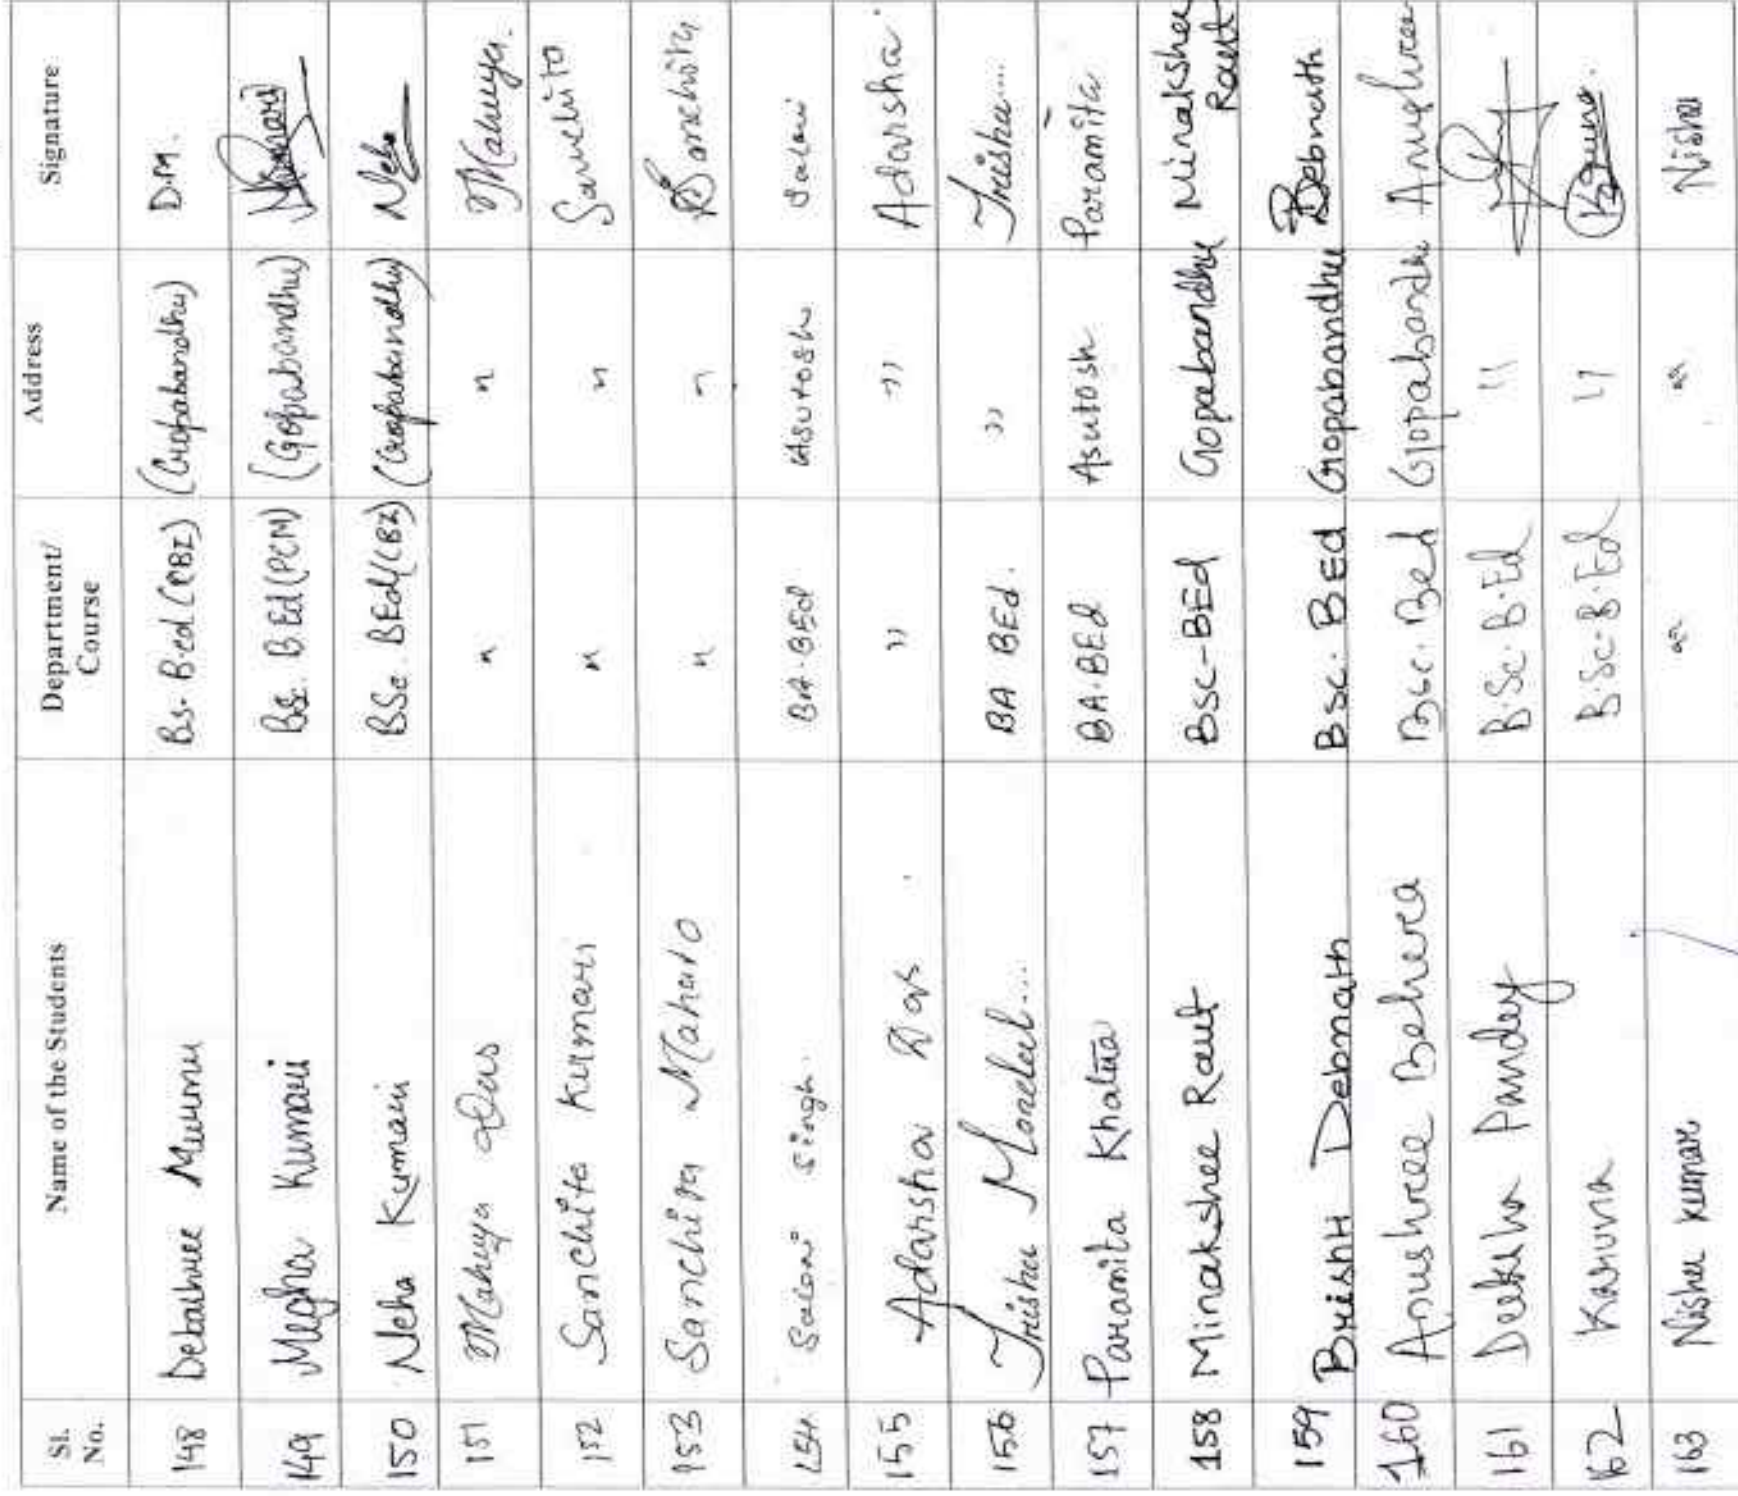 Sl. No. Name of the Students Department/ Course Address Signature
148 Debashree Murmu Bs. B.ed (CBZ) (Gopabandhu) D.M.
149 Megha Kumari BSc. B.Ed (PCM) (Gopabandhu)
150 Neha Kumari BSc. BEd (CBZ) (Gopabandhu) Neha
151 Mahuya Das " " Mahuya.
152 Sanchita Kumari " " Sanchita
153 Sanchita Mahato " " Sanchita
154 Saloni Singh. BA.BEd Asutosh Saloni
155 Adarsha Das " " Adarsha
156 Trisha Mondal.... BA BEd. " Trisha....
157 Paramita Khatua BA.BEd Asutosh Paramita
158 Minakshee Raut BSC-BEd Gopabandhu Minakshee Raut
159 Brishti Debnath Bsc. B Ed Gopabandhu BDebnath
160 Anushree Behera Bsc. Bed Gopabandhu Anushree
161 Deeksha Pandey B.Sc.B.Ed "
162 Karuna B.Sc.B.Ed " Karuna.
163 Nisha Kumari " " Nisha